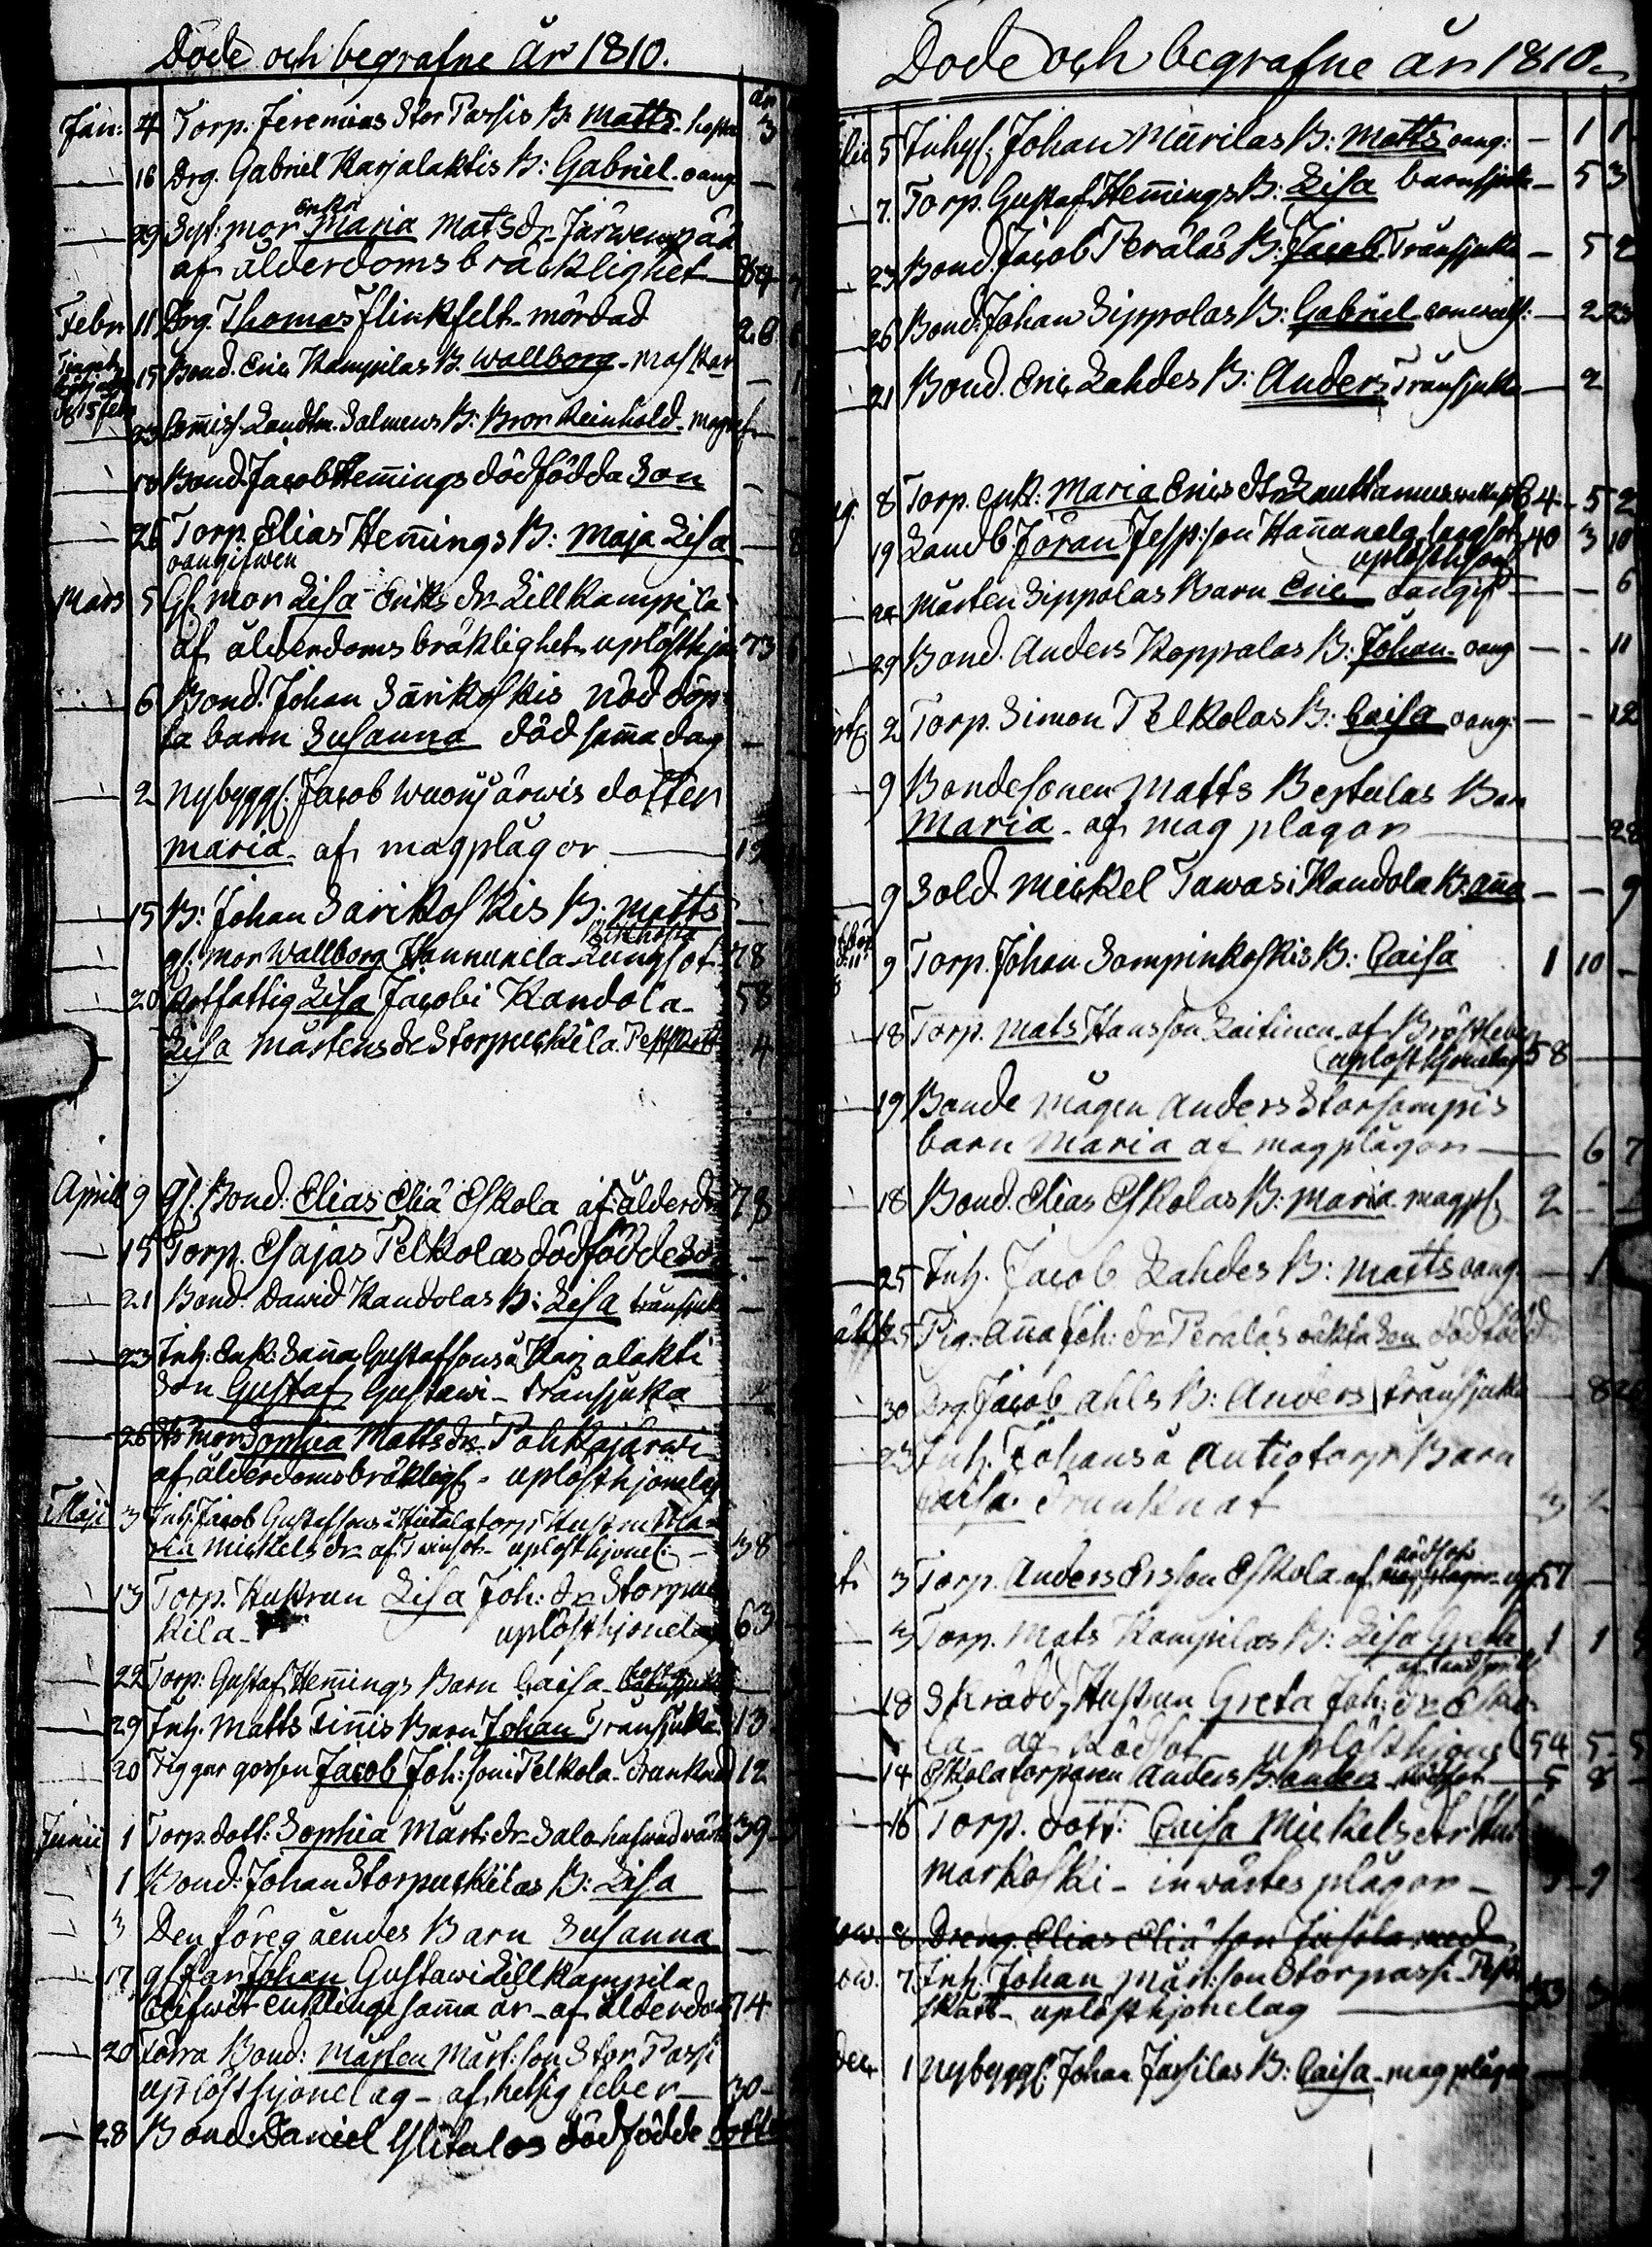 Döde och begrafne År 1810.
år
Jan: 4 Torp. Jeremias Stor Passis B: Matts - hosta 3
16 Drg. Gabriel Karjalaktis B: Gabriel - oang. —
29 Syt: mor enkan Maria Matsdr Järwenpää
af ålderdoms bräcklighet — 84
Febr: 11 Drg. Thomas Flinkfelt - mördad 26
15 Bond. Eric Kampilas B. Wallborg - maskar —
d. 15 febr
23 Com̄iss. Landtm. Salmens B: Bror Reinhold -
10 Bond. Jacob Hem̄ings dödfödda Son —
26 Torp. Elias Hem̄ings B: Maja Lisa —
oangifwen
Mars 5 Gl. mor Lisa Eriks dr Lillkampila
af ålderdoms bräklighet, uplöst hjon 73
6 Bond. Johan Särikoskis nöd döp-
ta barn Susanna död sam̄a dag —
2 Nybygg. Jacob Wuonjärwis dotter
Maria - af magplågor — 19
15 B: Johan Sarikoskis B: Matts —
kikhosta
gl. mor Wallborg Hannunela Lungsot 78
20 Rotfattig Lisa Jacobi Kandola - 58
Lisa Mårtensdr Storpuckila 4
Aprill 9 gl. Bond: Elias Eliä Eskola af ålderdom 78
15 Torp. Esajas Pelkolas dödfödde Son —
21 Bond. David Kandolas B: Lisa transjuk —
23 Inh: Enk: San̄a Gustafsons ä Karjalakti
Son Gustaf Gustawi - transjuka
26 Sophia Mattsdr Pahkajärwi
af ålderdoms bräkligh - uplöst hjonelag
Maji 3 Inh. Jacob Gustafsons ä Hietala torp Hustru Ma-
ria Mickels dr af Transot - uplöst hjonel: — 38
13 Torp. Hustrun Lisa Joh: dr Storpuc
kila - uplöst hjonelag 63
22 Torp: Gustaf Hem̄ings Barn Caisa - —
29 Inh. Matts Tin̄is Barn Johan Transjuka 13
20 Tiggar gossen Jacob Joh: son Pelkola - drunknad 12
Junii 1 Torp. dott: Sophia Mårt: dr Salo hafwud wärk 39
1 Bond: Johan Storpuckilas B: Lisa —
3 Den föregåendes Barn Susanna —
17 gl. far Johan Gustawi Lillkampila
blifwit enklinge sam̄a år - af ålderdom 74
20 Förra Bond: Mårten Mårt: son Stor Passi
uplöst hjonelag - af hetsig feber — 30 -
28 Bond. Daniel Ylitalos dödfödde dotter
Döde och begrafne år 1810.
5 Inhys. Johan Murilas B: Matts oang: — 1 1
7. Torp. Gustaf Hem̄ings B: Lisa barnsjuka — 5 3
23 Bond. Jacob Peräläs B: Jacob Transjuka — 5 2
26 Bond: Johan Sippolas B: Gabriel — 2 23
21 Bond. Eric Lahdes B: Anders Transjuka — 2
8 Torp. enk: Maria Erics dtr 64 - 5 2
19 Landb Jöran Jesp: son Han̄anela lungsot 40 3 10
uplöst hjon
24 Mårten Sippolas Barn Eric oangif — — 6
29 Bond. Anders Koppalas B: Johan - oang — - 11
2 Torp. Simon Pelkolas B: Caisa oang: — - 12
9 Bondesonen Matts Bertulas Barn
Maria - af mag plågor — 28
9 Sold. Mickel Tawasi Kandola B: An̄a — — 9
9 Torp. Johan Sompinkoskis B: Caisa 1 10 -
18 Torp. Mats Hansson Laitinen af Bröstfeber
uplöst hjonelag 58
19 Bonde mågen Anders Storsompis
barn Maria af magplågor — 6 7
18 Bond. Elias Eskolas B: Maria magpl 2
25 Inh. Jacob Lahdes B: Matts oang — 1
25 Pig. An̄a Joh: dr Peräläs oäkta Son dödfödd
30 Drg. Jacob Ahls B: Anders transjuka — 8 26
23 Inh. Johans ä Antiotorp Barn
Caisa. drunknat
rödsot
3 Torp. Anders Ersson Eskola - af magplågor - upl 57
3 Torp. Mats Kampilas B: Lisa Greta 1 1
18 Skrädd. Hustrun Greta Joh: dr Esko-
la - af Rödsot - uplöst hjone 54 5 5
14 Eskola torparen Anders B: Anders rödsot — 5 8
16 Torp. dott: Caisa Mickelsdtr
markoski - inwärtes plågor - 9
8 Dreng. Elias Eliä son
7 Inh. Johan Mårt: son Storpassi -
uplöst hjonelag — 53
Dec 1 Nybygg. Johan Jassilas B: Caisa - mag plågor —